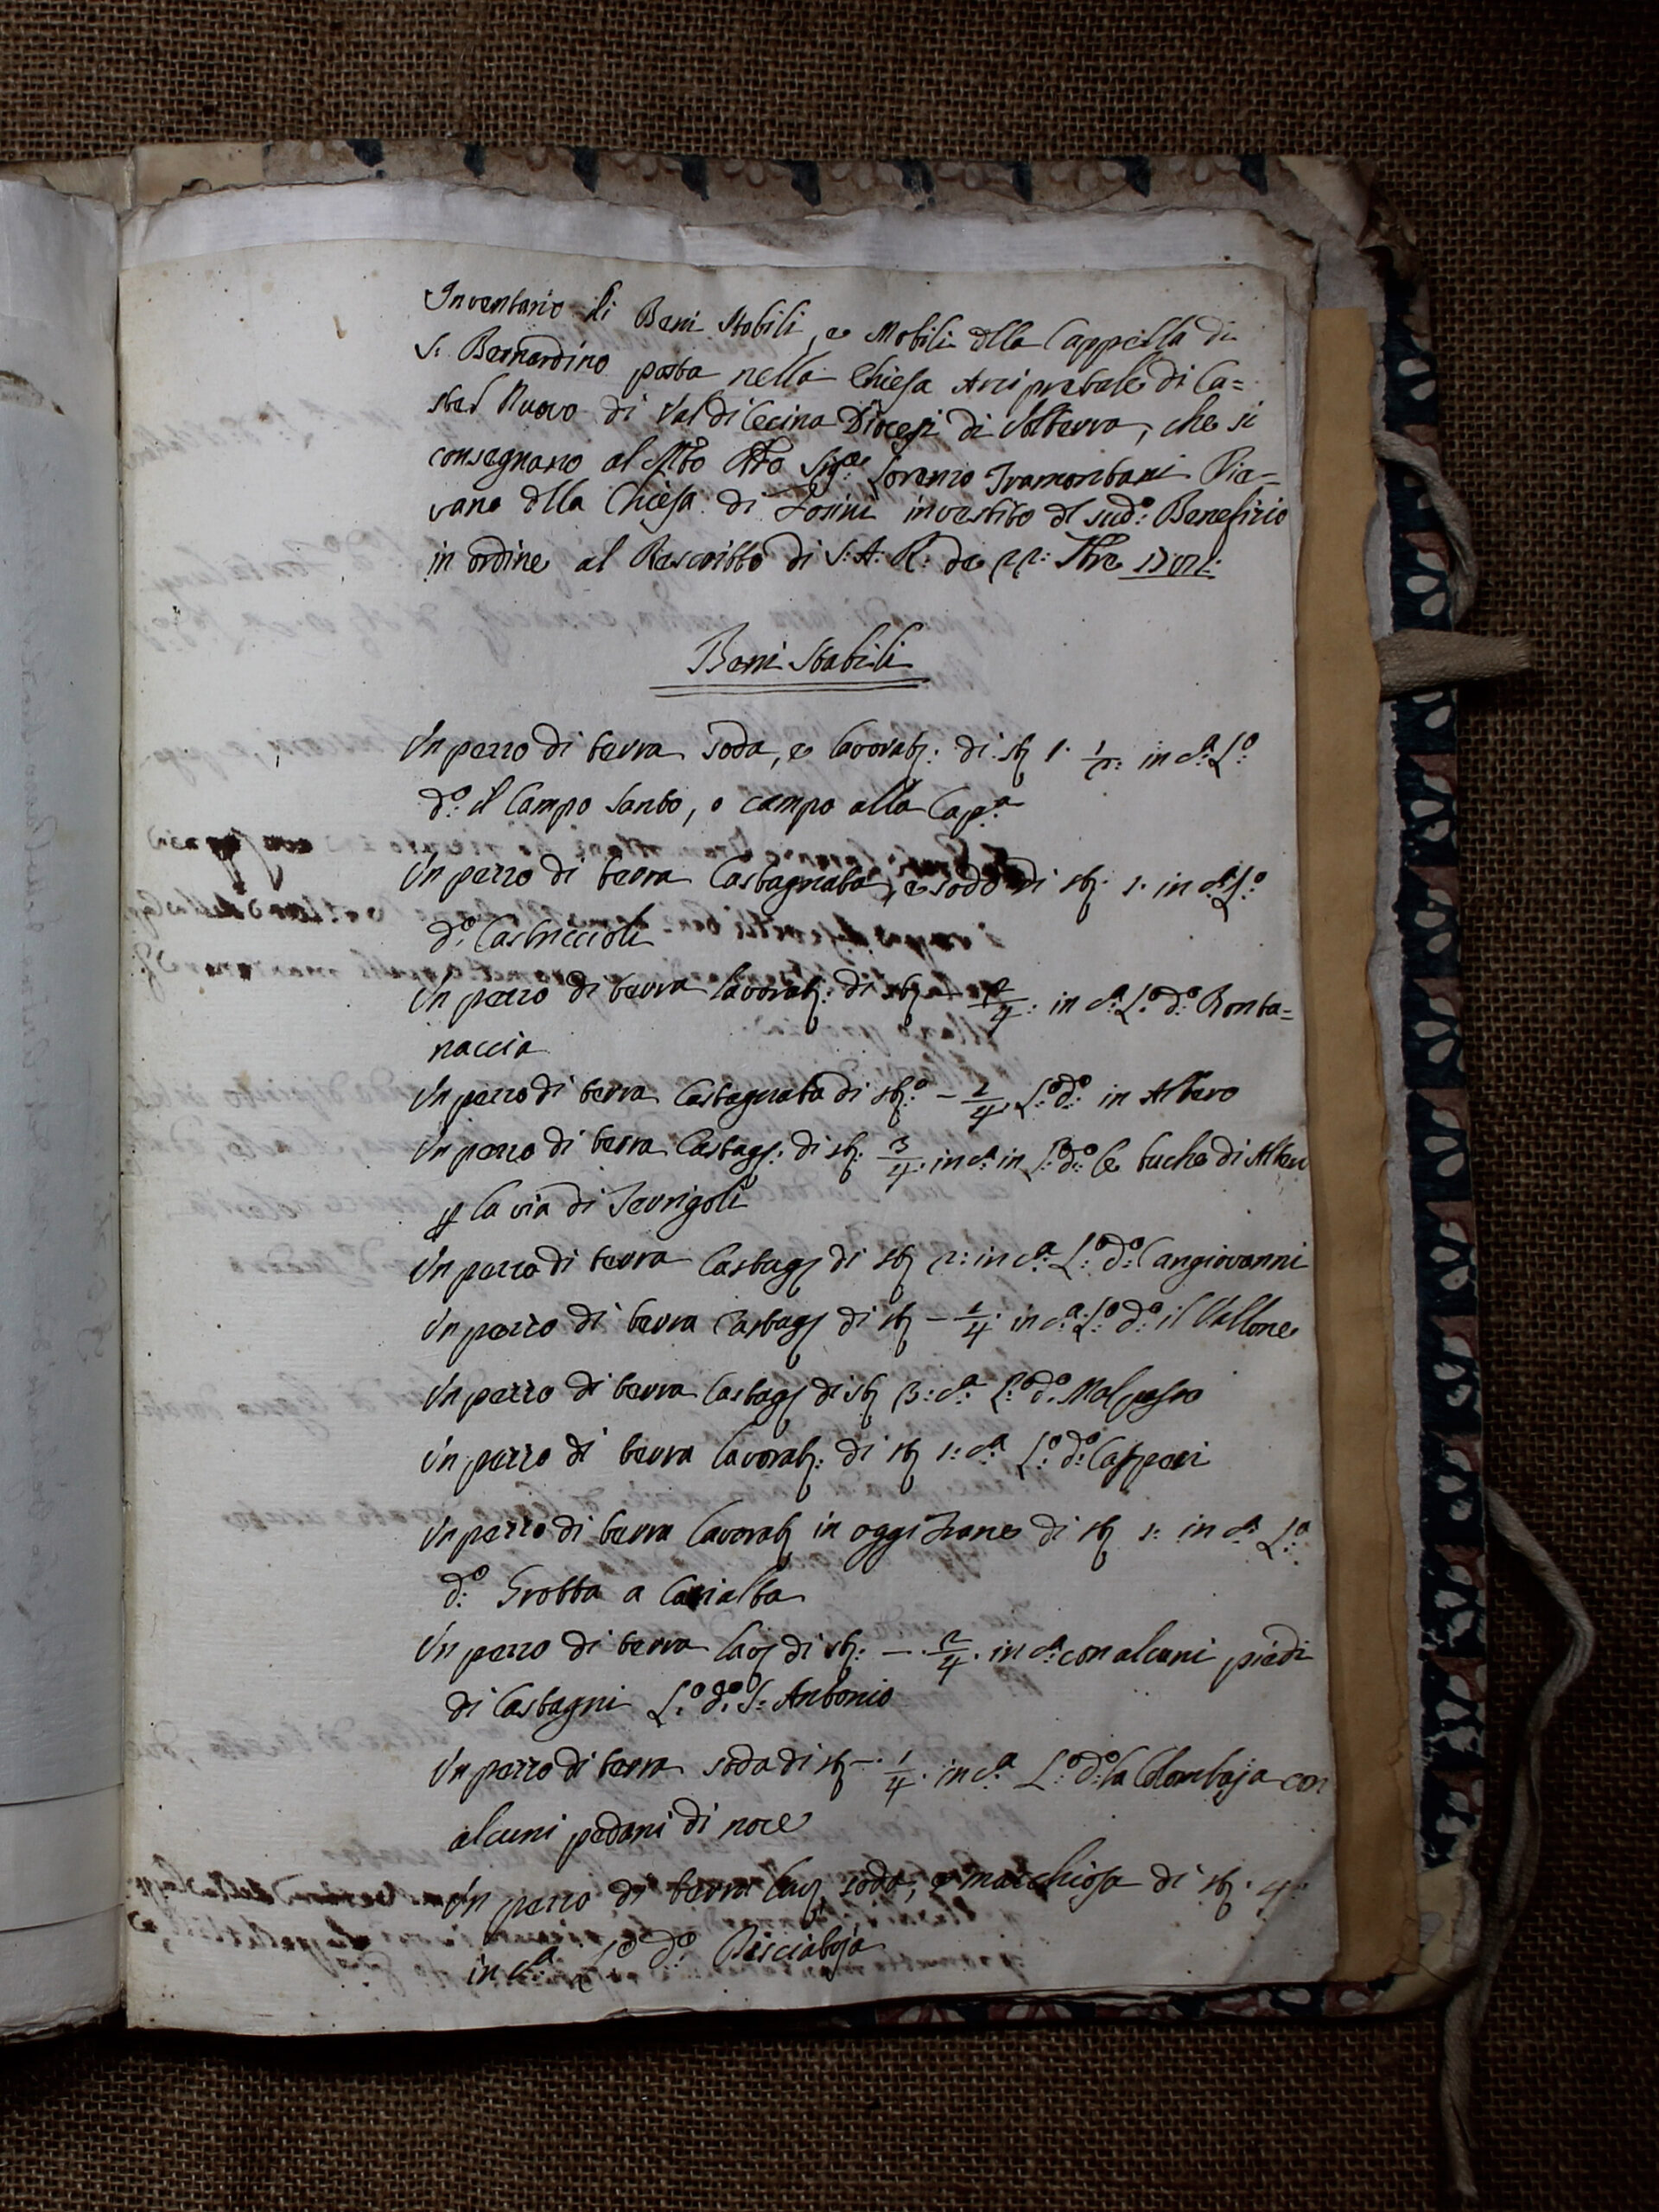 Inventario di Beni Stabili, e Mobili dlla Cappella di
S. Bernardino posta nella Chiesa Arcipretale di Ca=
stel Nuovo di Val di Cecina Diocesi di Volterra, che si
consegnano al Mto Rdo Sigre Lorenzo Tramontani Pie=
vano dlla Chiesa di Fosini investito dl sudo: Benefizio
in ordine al Rescritto di S: A: R: de 22: Sbre
Beni Stabili
Un pezzo di terra soda, e lavorat: di st 1. 1/2: in ca: Lo:
do: il Campo Santo, o campo alla Capa
Un pezzo di terra Castagnata, e soda di st: 1. in ca: Lo:
do: Castriccioli
Un pezzo di terra lavorat: di st: - 2/4: in ca: Lo: do: Fonta=
naccia
Un pezzo di terra Castagnata di sto: - 1/4: Lo: do: in Albero
Un pezzo di terra Castag: di st: 3/4: in ca: in Lo: do: le buche di
p la via di Serrigoli
Un pezzo di terra Castag di st 2: in ca: Lo: do: Cangiovanni
Un pezzo di terra Castag di st - 1/4: in ca: Lo: do: il Vallone
Un pezzo di terra Castag di st 3: ca: Lo: do: Malpasso
Un pezzo di terra lavorat: di st 1: ca: Lo: do: Capperi
Un pezzo di terra lavorat in oggi di st 1: in ca: Lo:
do: Grotta a Casialta
Un pezzo di terra lav di st: - 2/4. in ca: con alcuni piedi
di Castagni Lo: do: S: Antonio
Un pezzo di terra soda di st -. 1/4. in ca: Lo: do: la Colombaja con
alcuni pedani di noce
Un pezzo di terra lav soda, e macchiosa di st. 4:
in ca: Lo: do: Pisciatoja